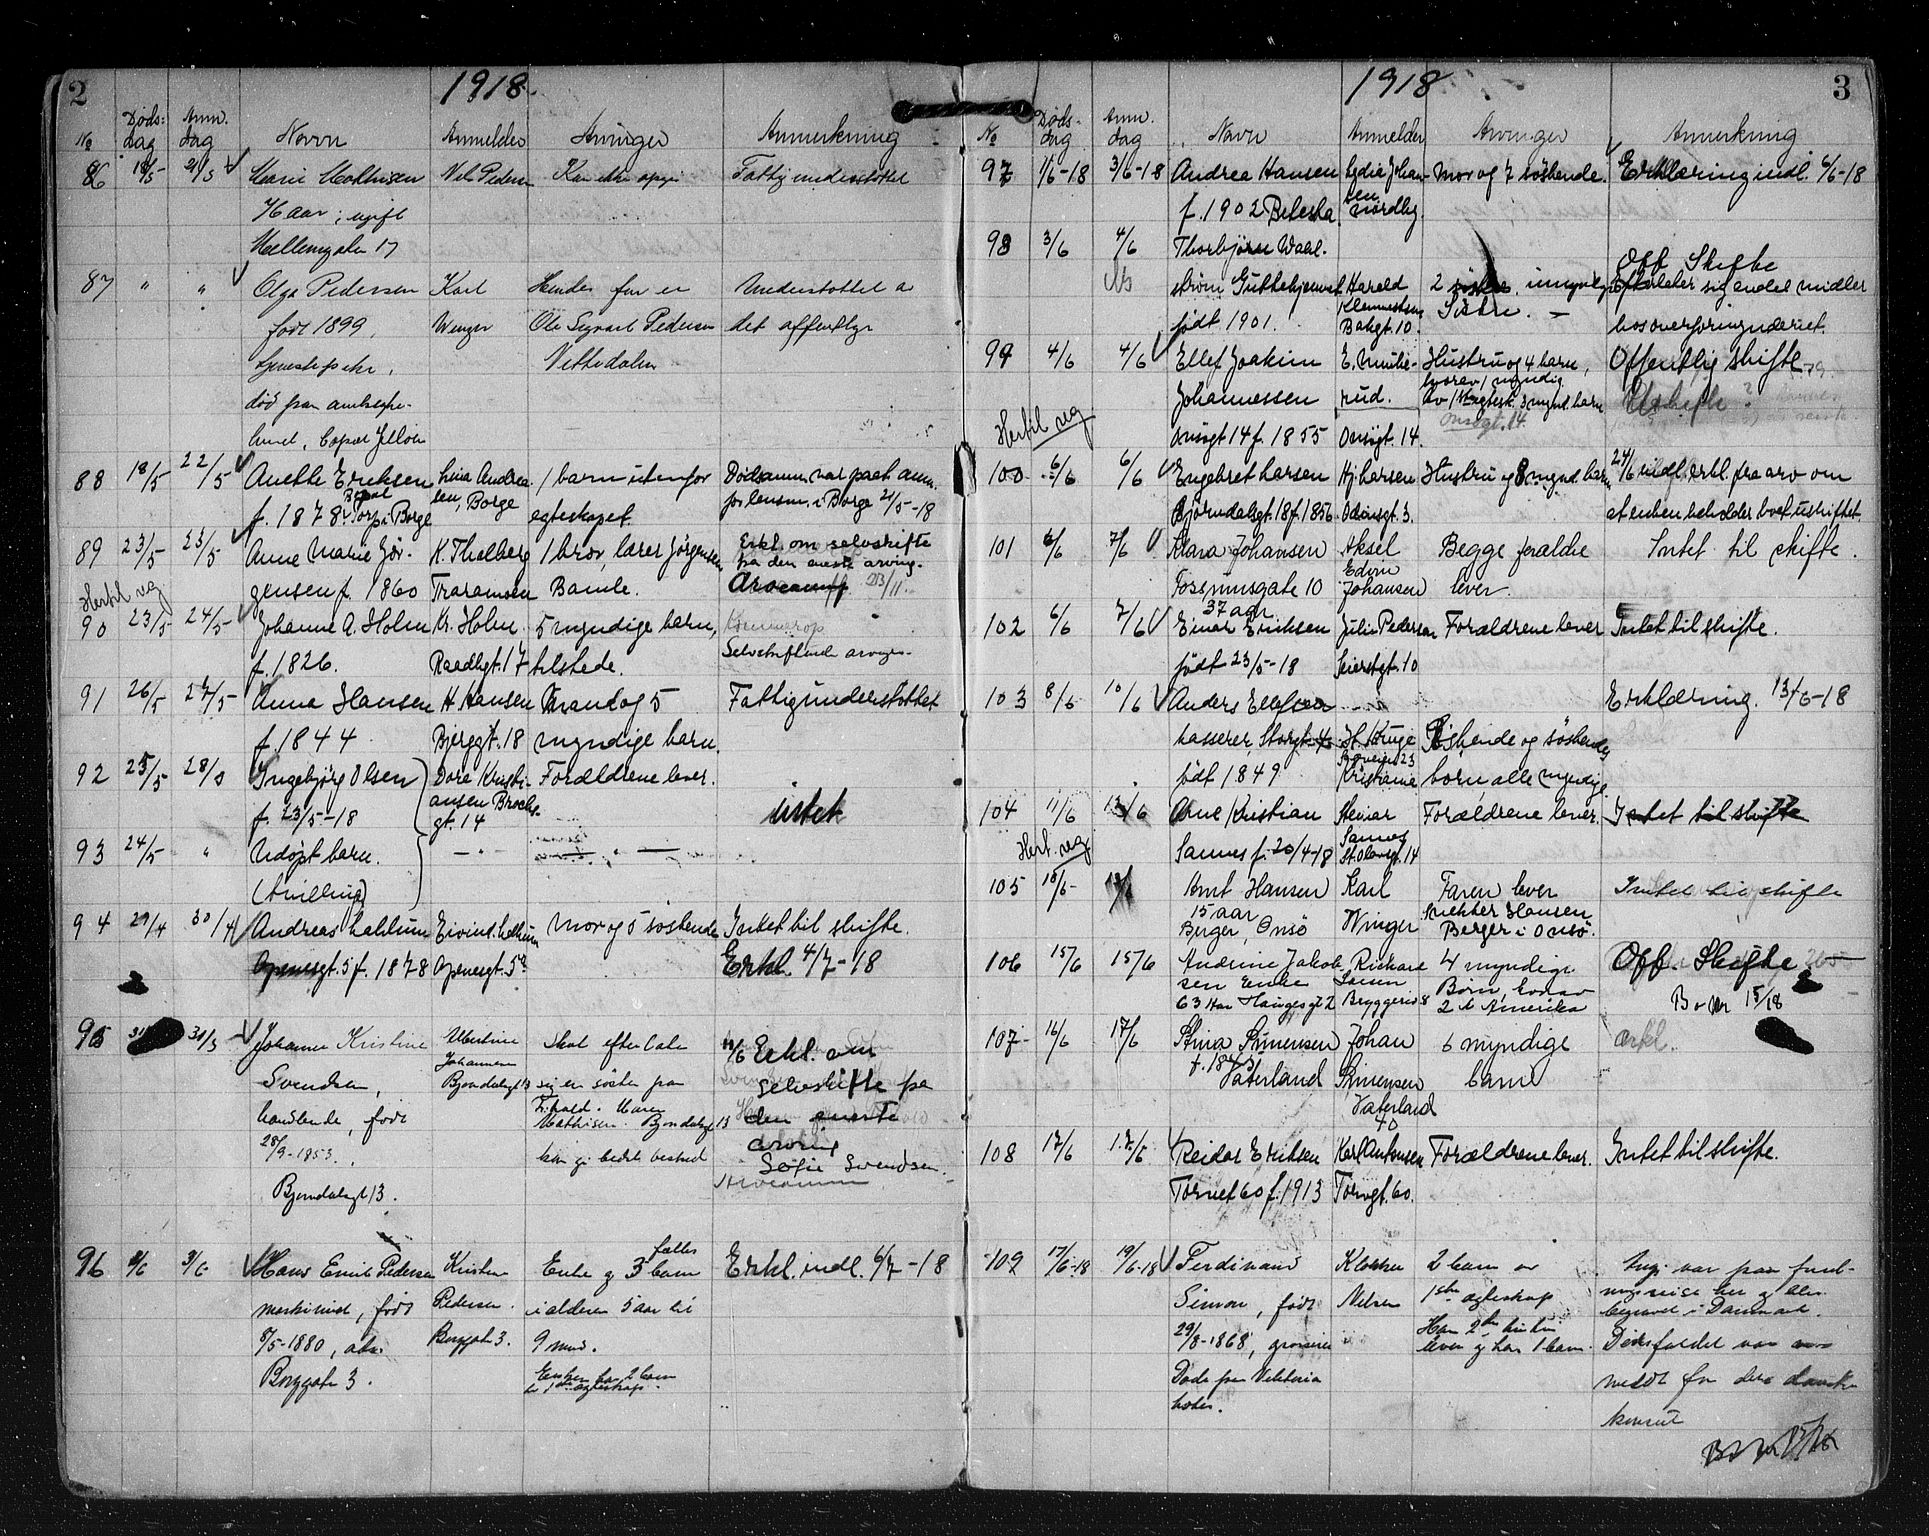 2
1918.
No Døds-dag Anm. dag Navn Anmelder Arvinger Anmerkning
86 18/5 21/5 Marie Mathisen Nils Pedersen Kan ikke opgi Fattigunderstøttet
76 aar, ugift
Mellemgaten 17
87 " " Olga Pedersen Karl Hendes far er Understøttet av
født 1899, Winger Ole Sigvart Pedersen det offentlige
tjenestepike, Vettedalen
død paa amtssyke-
huset,
88 18/5 22/5 Anette Eriksen Lina Andrea- 1 barn utenfor Dødsanm. var paat. anm.
f. 1878 Torp i Borge sen, Borge egteskapet. for lensm. i Borge 21/5-18
89 23/5 23/5 Anne Marie Jør- K. Thalberg 1 bror, lærer Jørgensen Erkl. om selvskifte
fra den eneste arving.
gensen f. 1860 Traramsen Bamle. 23/11.
Hertil veg
90 23/5 24/5 Johanne A. Holm Kr. Holm 5 myndige barn,
f. 1826. Raadhgt. 17 tilstede. Selvskiftende arvinger.
91 26/5 27/5 Anna Hansen H. Hansen Mand og 5 Fattigunderstøttet
f. 1844 Bjerggt. 18 myndige barn.
92 25/5 28/5 Ingebjørg Olsen Dore Kristi- Forældrene lever.
f. 23/5-18 ansen Brochs- intet
gt. 14
93 24/5 " Udøpt barn. — " — — " —
(tvilling)
94 29/4 30/4 Andreas Lahlum Eivind Lahlum Mor og 5 søskende Intet til skifte.
Apenesgt. 5 f. 1878 Apenesgt. 5 Erkl. 4/7-18
95 31/5 Johanne Kristine Albertine Skal efterlate 11/6 Erkl. om
Svendsen, Johannesen sig en søster paa selvskifte fra
handlende, født Bjørndalsgt 13 Maren den eneste
28/9-1853. Mathisen. Bjørndalsgt 13 arving
kan gi bedre besked Sofie Svendsen.
Bjørndalsgt 13.
96 3/6 Hans Emil Pedersen Kristen Enke og 3 fælles barn Erkl. indl. 6/7-18
maskinist, født Pedersen. i alderen 5 aar til
8/5-1880, Borggate 3. 9 mnd.
Borggate 3. Enken har 2 barn
1ste egteskap.
3
1918
No Døds-dag Anm. dag Navn Anmelder Arvinger Anmerkning
97 1/6-18 3/6-18 Andrea Hansen Lydia Johan- Mor og 7 søskende. Erklæring indl. 6/6-18
f. 1902 Betesta sen Nordbg.
98 3/6 4/6 Thorbjørn Wahl- Off. Skifte
strøm Guttehjemmet Harald 2 umyndige Efterlater sig endel midler
født 1901. Klemmetsen Søstre. hos overformynderiet.
Bakgt. 10.
99 4/6 4/6 Ellef Joakim E. Mulle- Hustru og 4 barn, Offentlig skifte
hvorav 1 myndig
Johannessen rud. av 1 egtesk. 3 mynd. barn Uskifte?
Hertil veg
Onsøgt 14 f. 1855 Onsøgt. 14. Onsøgt. 14
100 6/6 6/6 Engebret Larsen Hj. Larsen Hustru og 8 mynd. barn 24/6 indl. erkl. fra arv. om
Bjørndalsgt. 18 f. 1856 Odinsgt. 3. at enken beholder boet uskiftet.
101 6/6 7/6 Klara Johansen Aksel Begge forældre Intet til skifte.
Fossumsgate 10 Edvin Johansen lever.
37 aar
102 6/6 7/6 Einar Eriksen Julie Pedersen Forældrene lever Intet til skifte.
født 23/5-18 Seierstgt. 10
103 8/6 10/6 Anders Ellefsen Erklæring. 13/6-18
kasserer, Storgt. H. Kruge Søskende og søskende
født 1849 Kristiania børn alle myndige
104 11/6 12/6 Arne Kristian Steinar Forældrene lever. Intet til skifte
Hert. veg
Sannes f. 20/4-18 Sannes St. Olavsgt. 14
105 18/6 Arnt Hansen Karl Faren lever Intet til skifte
15 aar snekker Hansen
Berger, Onsø Winger Berger i Onsø.
106 15/6 15/6 Andrine Jakob- Rickard 4 myndige Off. Skifte
sen Enke Børn, hvorav
63 Hans Haugesgt 2 Bryggeriet 8 2 i Amerika 15/18
107 16/6 17/6 Stina Simensen Johan 6 myndige erkl.
Vaterland Simensen barn
Vaterland
40
108 17/6 17/6 Reidar Eriksen Karl Antonsen Forældrene lever. Intet til skifte.
Torvet 60 f. 1913 Torvgt. 60.
109 17/6-18 19/6-18 Ferdinand Klokker 2 barn av
Simon, født Nielsen 1ste egteskap her og blev
29/8-1868, Hans 2den hustru begravet i Danmark.
lever og har 1 barn. Dødsfaldet var
Døde paa Viktoria meldt fra den danske
hotel. konsul